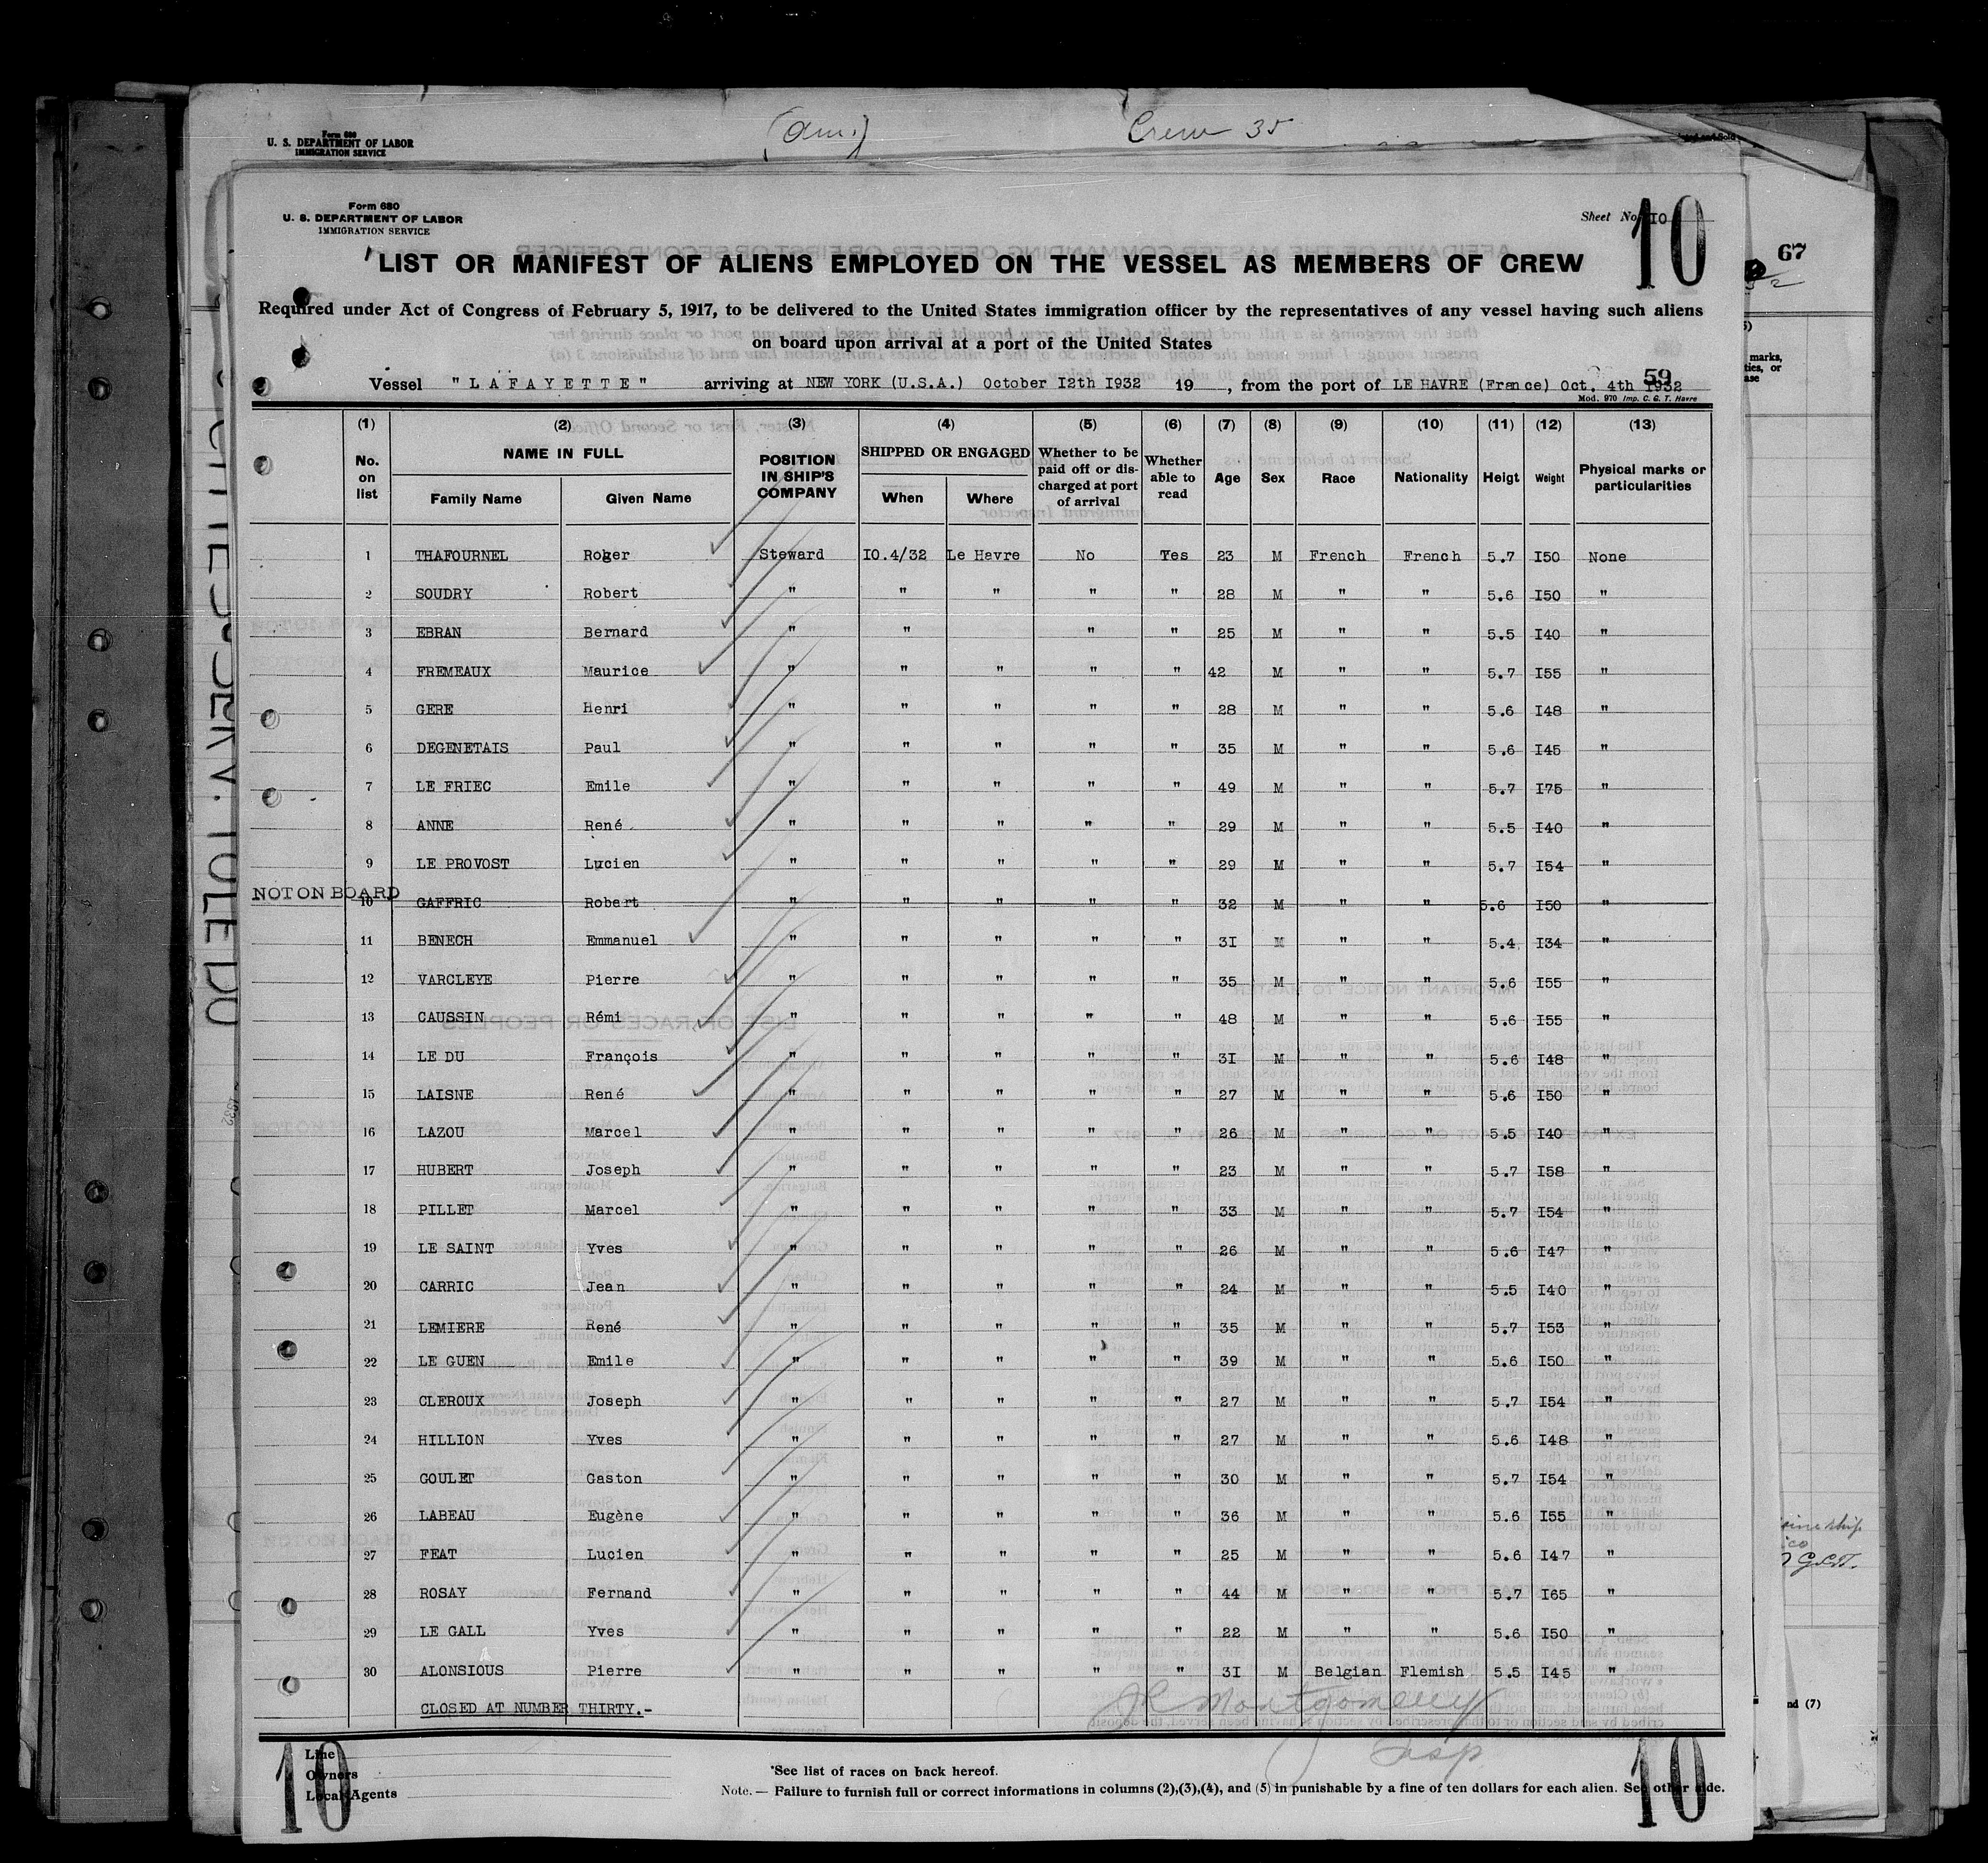 (am.) Crew 35
Form 680
U. S. DEPARTMENT OF LABOR
IMMIGRATION SERVICE
67
Form 680
U. S. DEPARTMENT OF LABOR
IMMIGRATION SERVICE
Sheet No. IO
10
LIST OR MANIFEST OF ALIENS EMPLOYED ON THE VESSEL AS MEMBERS OF CREW
Required under Act of Congress of February 5, 1917, to be delivered to the United States immigration officer by the representatives of any vessel having such aliens
on board upon arrival at a port of the United States
59
Vessel "LAFAYETTE" arriving at NEW YORK (U.S.A.) October I2th I932 19 , from the port of LE HAVRE (France) Oct. 4th I932
Mod. 970 Imp. C. G. T. Havre
(1) (2) (3) (4) (5) (6) (7) (8) (9) (10) (11) (12) (13)
No. on list NAME IN FULL Family Name Given Name POSITION IN SHIP'S COMPANY SHIPPED OR ENGAGED When Where Whether to be paid off or discharged at port of arrival Whether able to read Age Sex Race Nationality Heigt Weight Physical marks or particularities
1 THAFOURNEL Roger Steward IO.4/32 Le Havre No Yes 23 M French French 5.7 I50 None
2 SOUDRY Robert " " " " " 28 M " " 5.6 I50 "
3 EBRAN Bernard " " " " 25 M " " 5.5 I40 "
4 FREMEAUX Maurice " " " " " 42 M " " 5.7 I55 "
5 GERE Henri " " " " " 28 M " " 5.6 I48 "
6 DEGENETAIS Paul " " " " " 35 M " " 5.6 I45 "
7 LE FRIEC Emile " " " " " 49 M " " 5.7 I75 "
8 ANNE René " " " " " 29 M " " 5.5 I40 "
9 LE PROVOST Lucien " " " " " 29 M " " 5.7 I54 "
NOT ON BOARD
10 GAFFRIC Robert " " " " " 32 M " " 5.6 I50 "
11 BENECH Emmanuel " " " " " 3I M " " 5.4 I34 "
12 VARCLEYE Pierre " " " " " 35 M " " 5.6 I55 "
13 CAUSSIN Rémi " " " " " 48 M " " 5.6 I55 "
14 LE DU François " " " " " 3I M " " 5.6 I48 "
15 LAISNE René " " " " " 27 M " " 5.6 I50 "
16 LAZOU Marcel " " " " " 26 M " " 5.5 I40 "
17 HUBERT Joseph " " " " " 23 M " " 5.7 I58 "
18 PILLET Marcel " " " " " 33 M " " 5.7 I54 "
19 LE SAINT Yves " " " " " 26 M " " 5.6 I47 "
20 CARRIC Jean " " " " " 24 M " " 5.5 I40 "
21 LEMIERE René " " " " " 35 M " " 5.7 I53 "
22 LE GUEN Emile " " " " " 39 M " " 5.6 I50 "
23 CLEROUX Joseph " " " " " 27 M " " 5.7 I54 "
24 HILLION Yves " " " " " 27 M " " 5.6 I48 "
25 GOULET Gaston " " " " " 30 M " " 5.7 I54 "
26 LABEAU Eugène " " " " " 36 M " " 5.6 I55 "
27 FEAT Lucien " " " " " 25 M " " 5.6 I47 "
28 ROSAY Fernand " " " " " 44 M " " 5.7 I65 "
29 LE GALL Yves " " " " " 22 M " " 5.6 I50 "
30 ALONSIOUS Pierre " " " " " 3I M Belgian Flemish 5.5 I45 "
CLOSED AT NUMBER THIRTY.-
JR Montgomery
Insp
Line
Owners
Local Agents
10
*See list of races on back hereof.
Note. — Failure to furnish full or correct informations in columns (2),(3),(4), and (5) in punishable by a fine of ten dollars for each alien. See other side.
10